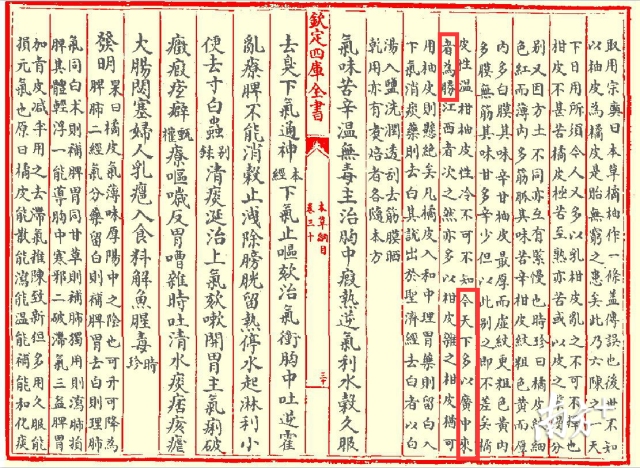 取用宗奭曰本草橘柚作一條蓋傳誤也後世不知
以柚皮為橘皮是貽無窮之患矣此乃六陳之一天
下日用所須今人又多以乳柑皮亂之不可不擇也
柑皮不甚苦橘皮極苦至熟亦苦或以皮之緊慢分
别又因方土不同亦互有緊慢也時珍曰橘皮紋細
色紅而薄内多筋脈其味苦辛柑皮紋粗色黄而厚
内多白膜其味辛甘柚皮最厚而虛紋更粗色黄内
多膜無筋其味甘多辛少但以此别之即不差矣橘
皮性温柑柚皮性冷不可不知今天下多以廣中來
者為勝江西者次之然亦多以柑皮雜之柑皮猶可
用柚皮則懸絶矣凡橘皮入和中理胃藥則留白入
下氣消痰藥則去白其説出於聖濟經去白者以白
湯入鹽洗潤透刮去筋膜晒
乾用亦有煮焙者各隨本方
氣味苦辛温無毒主治胸中瘕熱逆氣利水穀久服
欽定四庫全書
本草綱目
卷三十
三十
去臭下氣通神本經下氣止嘔欬治氣衝胸中吐逆霍
亂療脾不能消穀止洩除膀胱留熱停水起淋利小
便去寸白蟲别録清痰涎治上氣欬嗽開胃主氣痢破
癥瘕痃癖甄權療嘔噦反胃嘈雜時吐清水痰痞痎瘧
大腸閟塞婦人乳癰入食料解魚腥毒時珍
發明杲曰橘皮氣薄味厚陽中之陰也可升可降為
脾肺二經氣分藥留白則補脾胃去白則理肺
氣同白术則補脾胃同甘草則補肺獨用則瀉肺損
脾其體輕浮一能導胸中寒邪二破滯氣三益脾胃
加青皮減半用之去滯氣推陳致新但多用久服能
損元氣也原曰橘皮能散能瀉能温能補能和化痰